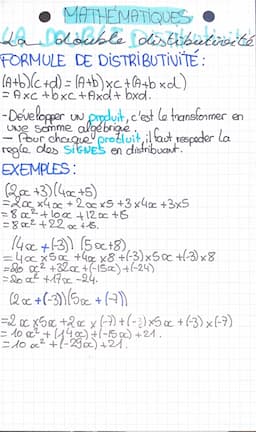 MATHÉMATIQUES
LA DOUBLE DISTRIBUTIVITÉ
La double distributivité
FORMULE DE DISTRIBUTIVITÉ :
(A+b)(c+d) = (A+b)xc+(A+b xd)
= Axc + bxc + Axd + bxd.
-Développer un produit, c'est le transformer en
une somme algébrique.
- Pour chaque produit, il faut respecter la
regle des SIGNES en distribuant.
EXEMPLES :
(2x+3)(4x+5)
= 2x x4x + 2x x5 + 3x4x + 3x5
= 8x² + 10x + 12x + 15
= 8x² + 22x + 15.
(4x+(-3))(5x+8)
= 4x x5x + 4x x8 + (-3)x5x + (-3)x8
= 20x² + 32x + (-15x) + (-24)
= 20x² + 17x - 24.
(2x+(-3))(5x+(-7))
= 2x x5x + 2x x(-7) + (-3)x5x + (-3)x(-7)
= 10x² + (-14x) + (-15x) + 21.
= 10x² + (-29x) + 21.